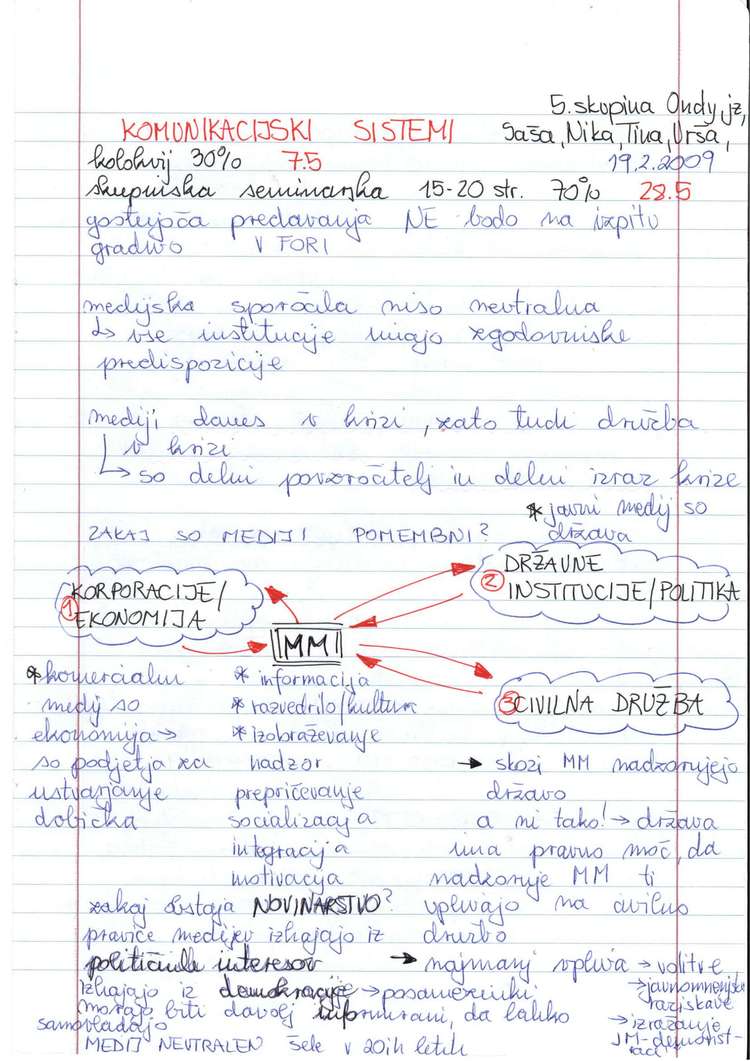 5. skupina Ondyjz,
KOMUNIKACIJSKI SISTEMI Saša, Nika, Tina, Urša,
kolokvij 30% 7.5 19.2.2009
skupinska seminarska 15-20 str. 70% 28.5
gostujoča predavanja NE bodo na izpitu
gradivo V FORI
medijska sporočila niso nevtralna
↳ vse institucije imajo zgodovinske
predispozicije
mediji danes v krizi, zato tudi družba
v krizi
↳ so delni povzročitelj in delni izraz krize
* javni medij so
ZAKAJ SO MEDIJI POMEMBNI? država
DRŽAVNE
KORPORACIJE/ 2 INSTITUCIJE/POLITIKA
1 EKONOMIJA
MMI
* komercialni * informacija
medij so * razvedrilo/kultura 3 CIVILNA DRUŽBA
ekonomija → * izobraževanje
so podjetja za nadzor → skozi MM nadzorujejo
ustvarjanje prepričevanje državo
dobička socializacija a ni tako! → država
integracija ima pravno moč, da
motivacija nadzoruje MM ti
zakaj obstaja NOVINARSTVO? vplivajo na civilno
pravice medijev izhajajo iz družbo
političnih interesov → najmanj vpliva → volitve
izhajajo iz demokracije → posamezniki → javnomnenjske
morajo biti dovolj informirani, da lahko raziskave
samovladajo → izražanje
MEDIJ NEVTRALEN šele v 20ih letih JM-demonst-